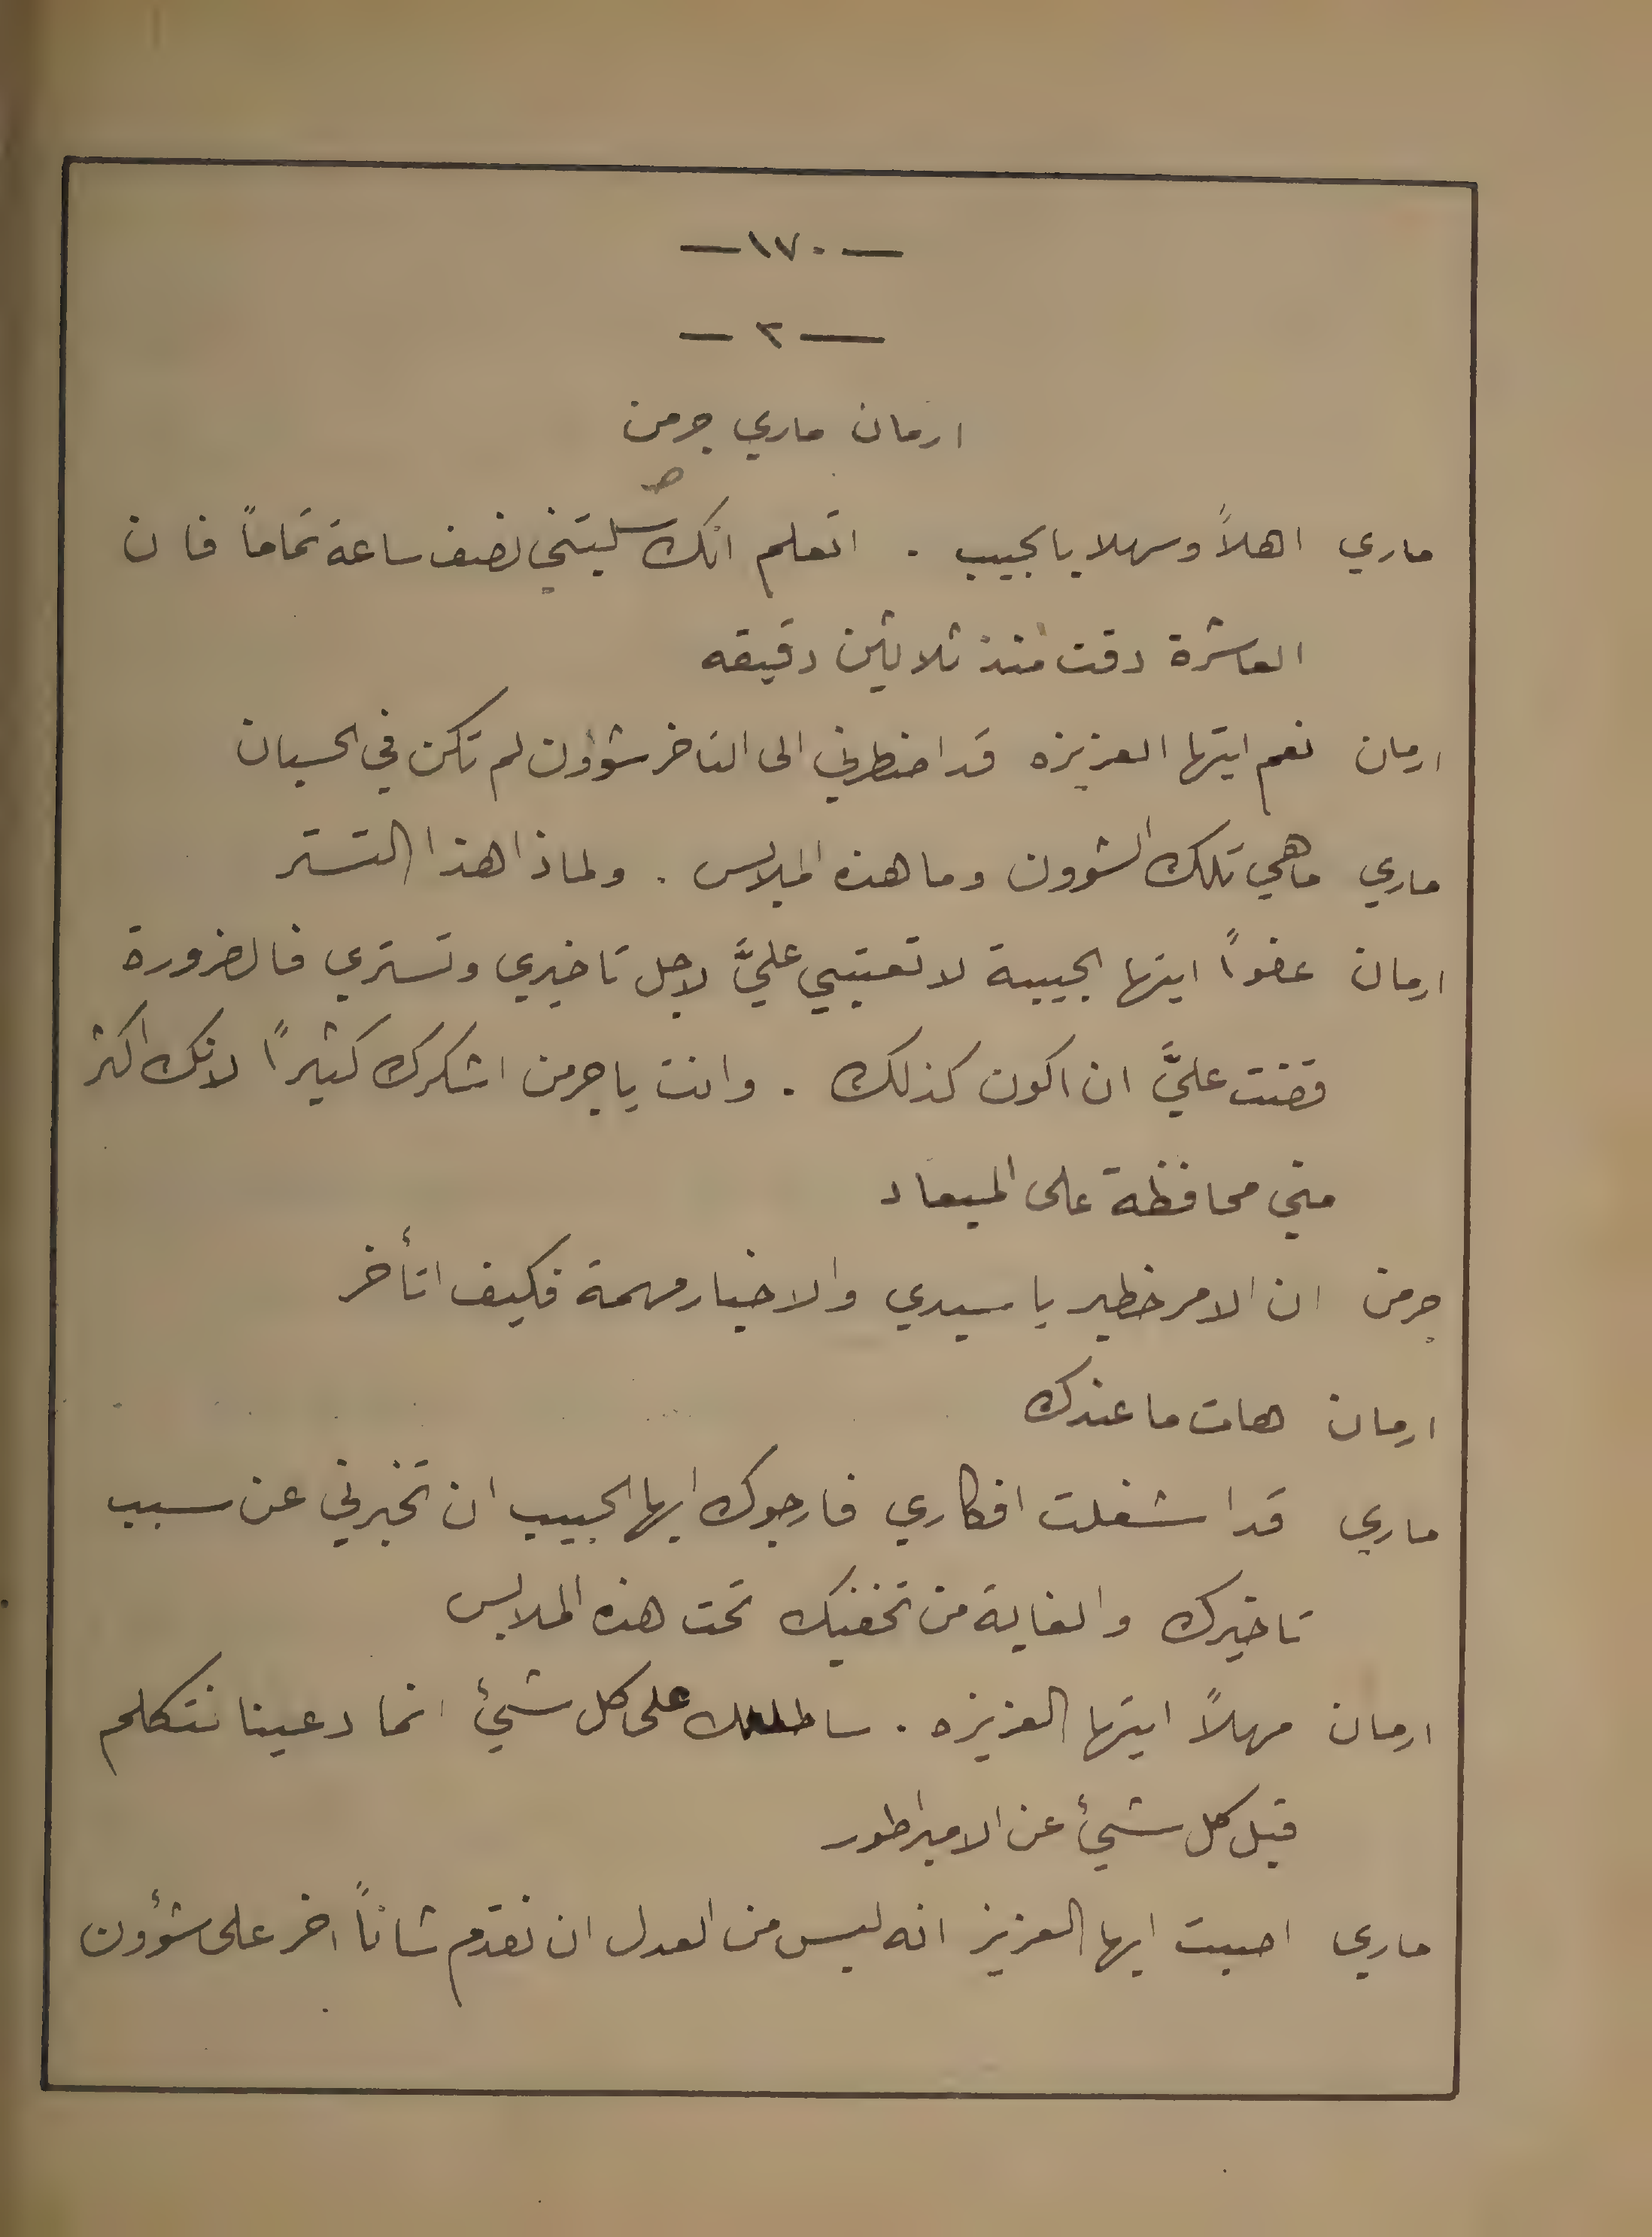 — ١٧٠ —
— ٢ —
ارمان ماري جرمن
ماري اهلاً وسهلا بالحبيب . اتعلم انك سلبتني نصف ساعة تماماً فان
العاشرة دقت منذ ثلاثين دقيقه
ارمان نعم ايتها العزيزه قد اضطرني الى التاخر شوؤن لم تكن في الحسبان
ماري ماهي تلك الشوون وما هذه الملابس . ولماذا هذا التستر
ارمان عفواً ايتها الحبيبة لا تعتبي عليَّ لاجل تاخيري وتستري فالضرورة
قضت عليَّ ان اكون كذلك . وانت يا جرمن اشكرك كثيراً لانك اكثر
مني محافظة على الميعاد
جرمن ان الامر خطير يا سيدي والاخبار مهمة فكيف اتأخر
ارمان هات ما عندك
ماري قد اشغلت افكاري فارجوك ايها الحبيب ان تخبرني عن سبب
تاخيرك والغاية من تخفيك تحت هذه الملابس
ارمان مهلاً ايتها العزيزه . ساطلعك على كل شيئ انما دعينا نتكلم
قبل كل شيئ عن الامبراطور
ماري اصبت ايها العزيز انه ليس من العدل ان نقدم شاناً اخر على شوؤن